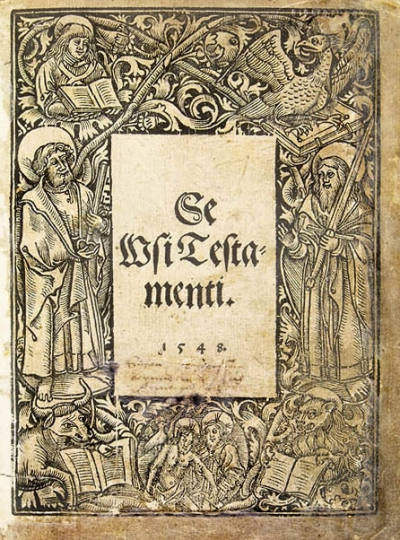 Se
Wsi Testa-
menti.
1548.